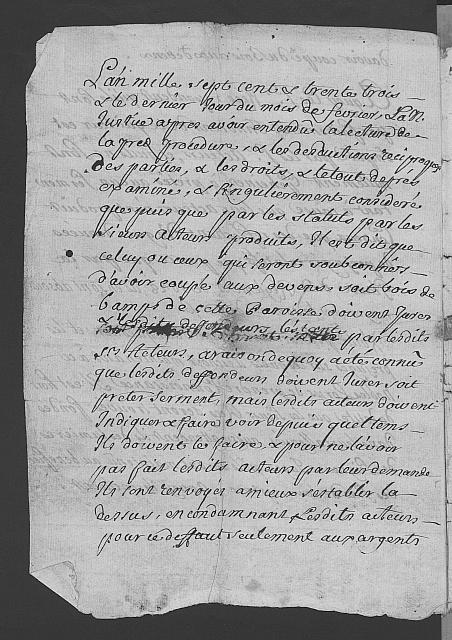 L'an mille sept cent & trente trois
& le dernier Jour du mois de fevrier, La d.
Justice apres avoir entendu la lecture de
la pred. procedure, & les deductions reciproques
des parties, & les droits, & le tout de pres
examiné, & singulièrement consideré
que puis que par les statuts par les
sieurs acteurs produits, Il est dit que
celuy ou ceux qui seront soubconnés
d'avoir coupé aux devens, soit bois de
bamps de cette Paroisse doivent Jurer
par lesdits
srs Acteurs, a raison de quoy a eté connu
que lesdits deffendeurs doivent Jurer soit
preter serment, mais lesdits acteurs doivent
Indiquer & faire voir depuis quel tems
Ils doivent le faire, & pour ne l'avoir
pas fait lesdits acteurs par leur demande
Ils sont renvoyés a mieux s'establer la
dessus, en condamnant Lesdits acteurs
pour ce deffaut seulement aux argents